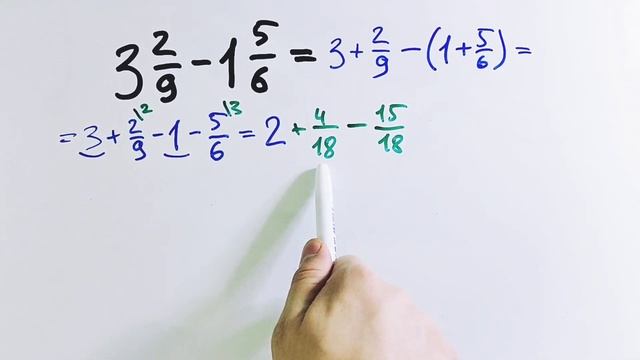 3 2/9 - 1 5/6 = 3 + 2/9 - (1 + 5/6) =
= 3 + 2/9 \2 - 1 - 5/6 \3 = 2 + 4/18 - 15/18